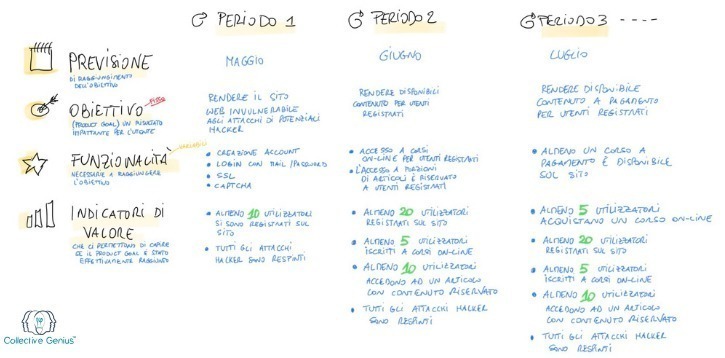 PERIODO 1
PERIODO 2
PERIODO 3 ----
PREVISIONE
DI RAGGIUNGIMENTO
DELL'OBIETTIVO
MAGGIO
GIUGNO
LUGLIO
OBIETTIVO
(PRODUCT GOAL) UN RISULTATO
IMPATTANTE PER L'UTENTE
RENDERE IL SITO
WEB INVULNERABILE
AGLI ATTACCHI DI POTENZIALI
HACKER
RENDERE DISPONIBILI
CONTENUTO PER UTENTI
REGISTRATI
RENDERE DISPONIBILE
CONTENUTO A PAGAMENTO
PER UTENTI REGISTRATI
FUNZIONALITÀ
VARIABILI
NECESSARIE A RAGGIUNGERE
L'OBIETTIVO
• CREAZIONE ACCOUNT
• LOGIN CON MAIL/PASSWORD
• SSL
• CAPTCHA
• ACCESSO A CORSI
ON-LINE PER UTENTI REGISTRATI
• L'ACCESSO A PORZIONI
DI ARTICOLI È RISERVATO
A UTENTI REGISTRATI
• ALMENO UN CORSO A
PAGAMENTO È DISPONIBILE
SUL SITO
INDICATORI DI
VALORE
CHE CI PERMETTONO DI CAPIRE
SE IL PRODUCT GOAL È STATO
EFFETTIVAMENTE RAGGIUNTO
• ALMENO 10 UTILIZZATORI
SI SONO REGISTRATI SUL
SITO
• TUTTI GLI ATTACCHI
HACKER SONO RESPINTI
• ALMENO 20 UTILIZZATORI
REGISTRATI SUL SITO
• ALMENO 5 UTILIZZATORI
ISCRITTI A CORSI ON-LINE
• ALMENO 10 UTILIZZATORI
ACCEDONO AD UN ARTICOLO
CON CONTENUTO RISERVATO
• TUTTI GLI ATTACCHI HACKER
SONO RESPINTI
• ALMENO 5 UTILIZZATORI
ACQUISTANO UN CORSO ON-LINE
• ALMENO 20 UTILIZZATORI
REGISTRATI SUL SITO
• ALMENO 5 UTILIZZATORI
ISCRITTI A CORSI ON-LINE
• ALMENO 10 UTILIZZATORI
ACCEDONO AD UN ARTICOLO
CON CONTENUTO RISERVATO
• TUTTI GLI ATTACCHI HACKER
SONO RESPINTI
Collective Genius™